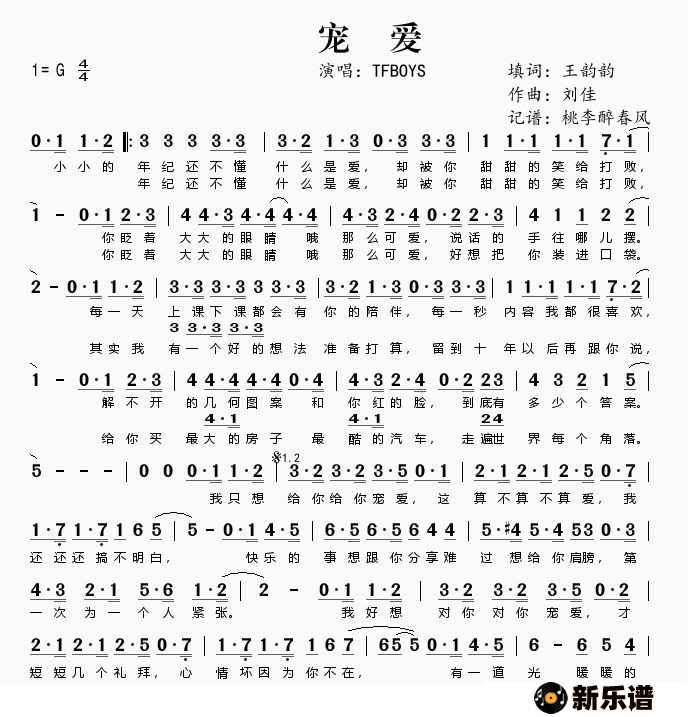 宠 爱
1=G 4/4 演唱：TFBOYS 填词：王韵韵
作曲：刘佳
记谱：桃李醉春风
0·1 1·2 |: 3 3 3 3·3 | 3·2 1·3 0·3 2·3 | 1 1·1 1·1 7·1 |
小小的 年纪还不懂 什么是爱，却被你 甜甜的笑给打败，
年纪还不懂 什么是爱，却被你 甜甜的笑给打败，
1 - 0·1 2·3 | 4·4 3·4 4·4 4·4 | 4·3 2·4 0·2 2·3 | 4 1 2 2 |
你眨着 大大的眼睛 哦 那么可爱，说话的 手往哪儿摆。
你眨着 大大的眼睛 哦 那么可爱，好想把 你装进口袋。
2 - 0·1 1·2 | 3·3 3·3 3·3 3·3 | 3·2 1·3 0·3 3·3 | 1·1 1·1 1·1 7·2 |
每一天 上课下课都会有 你的陪伴，每一秒 内容我都很喜欢，
3 3·3 3·3
其实我 有一个好的想法 准备打算，留到十年以后再跟你说，
1 - 0·1 2·3 | 4·4 4·4 4·4 4·4 | 4·3 2·4 0·2 23 | 4 3 2 1 5 |
解不开 的几何图案 和 你红的脸，到底有 多少个答案。
4·1 4·1 24
给你买 最大的房子 最 酷的汽车，走遍世 界每个角落。
5 - - - | 0 0 0·1 1·2 | 3·2 3·2 3·2 0·2 | 2·1 2·1 2·5 0·7 |
𝄋1.2
我只想 给你给你宠爱，这 算不算不算爱，我
1·7 1·7 1 6 5 | 5 - 0·1 4·5 | 6·5 6·5 6·2 4 4 | 5·#4 5·4 53 0·3 |
还还还搞不明白， 快乐的 事想跟你分享难 过想给你肩膀，第
4·3 2·1 5·6 1·2 | 2 - 0·1 1·2 | 3·2 3·2 3·2 0·2 |
一次为一个人紧张。 我好想 对你对你宠爱，才
2·1 2·1 2·5 0·7 | 1·7 1·7 1 6 7 | 65 5 0·1 4·5 | 6 - 6 5 4 |
短短几个礼拜，心 情坏因为你不在， 有一道 光 暖暖的
新乐谱